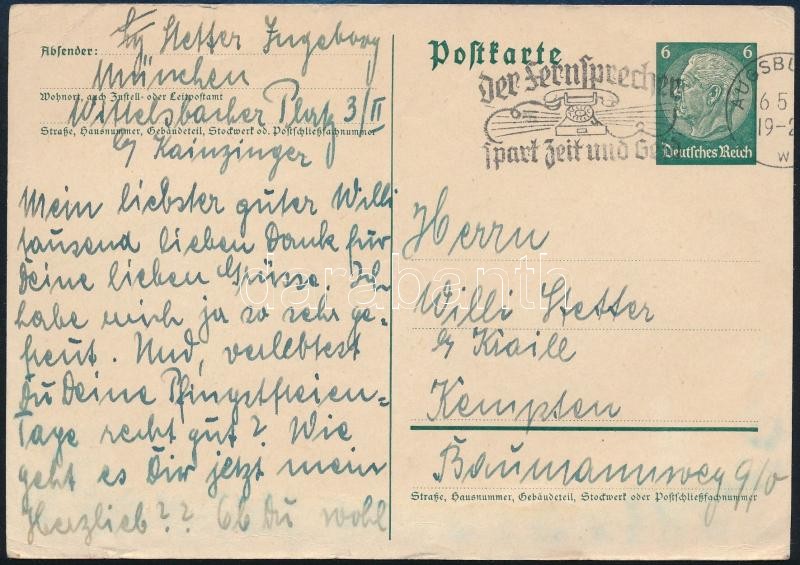 Absender:
Stetter Ingeborg
München
Wohnort, auch Zustell- oder Leitpostamt
Wittelsbacher Platz 3/II
Straße, Hausnummer, Gebäudeteil, Stockwerk od. Postschließfachnummer
b/ Kainzinger
Mein liebster guter Willi
tausend lieben Dank für
Deine lieben Grüsse. Ich
habe mich ja so sehr ge-
freut. Und, verlebtest
Du Deine Pfingstfreien=
Tage recht gut? Wie
geht es Dir jetzt mein
Herzlieb?? Ob Du wohl
Postkarte
Der Fernsprecher
spart Zeit und Geld
AUGSBU
6 5
19-2
W
6 6
Deutsches Reich
Herrn
Willi Stetter
b/ Kraill
Kempten
Baumannweg 9/0
Straße, Hausnummer, Gebäudeteil, Stockwerk oder Postschließfachnummer
darabanth